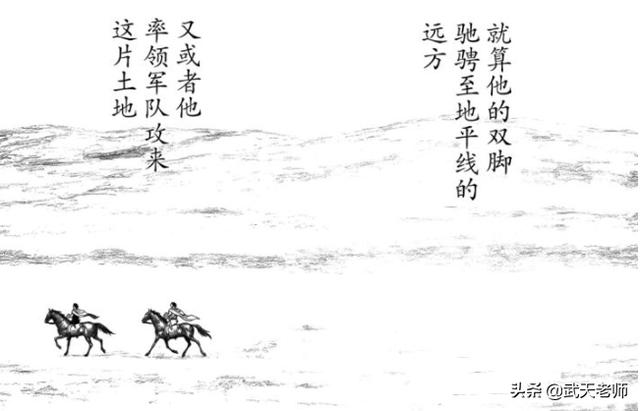 就算他的双脚
驰骋至地平线的
远方
又或者他
率领军队攻来
这片土地
头条 @武天老师